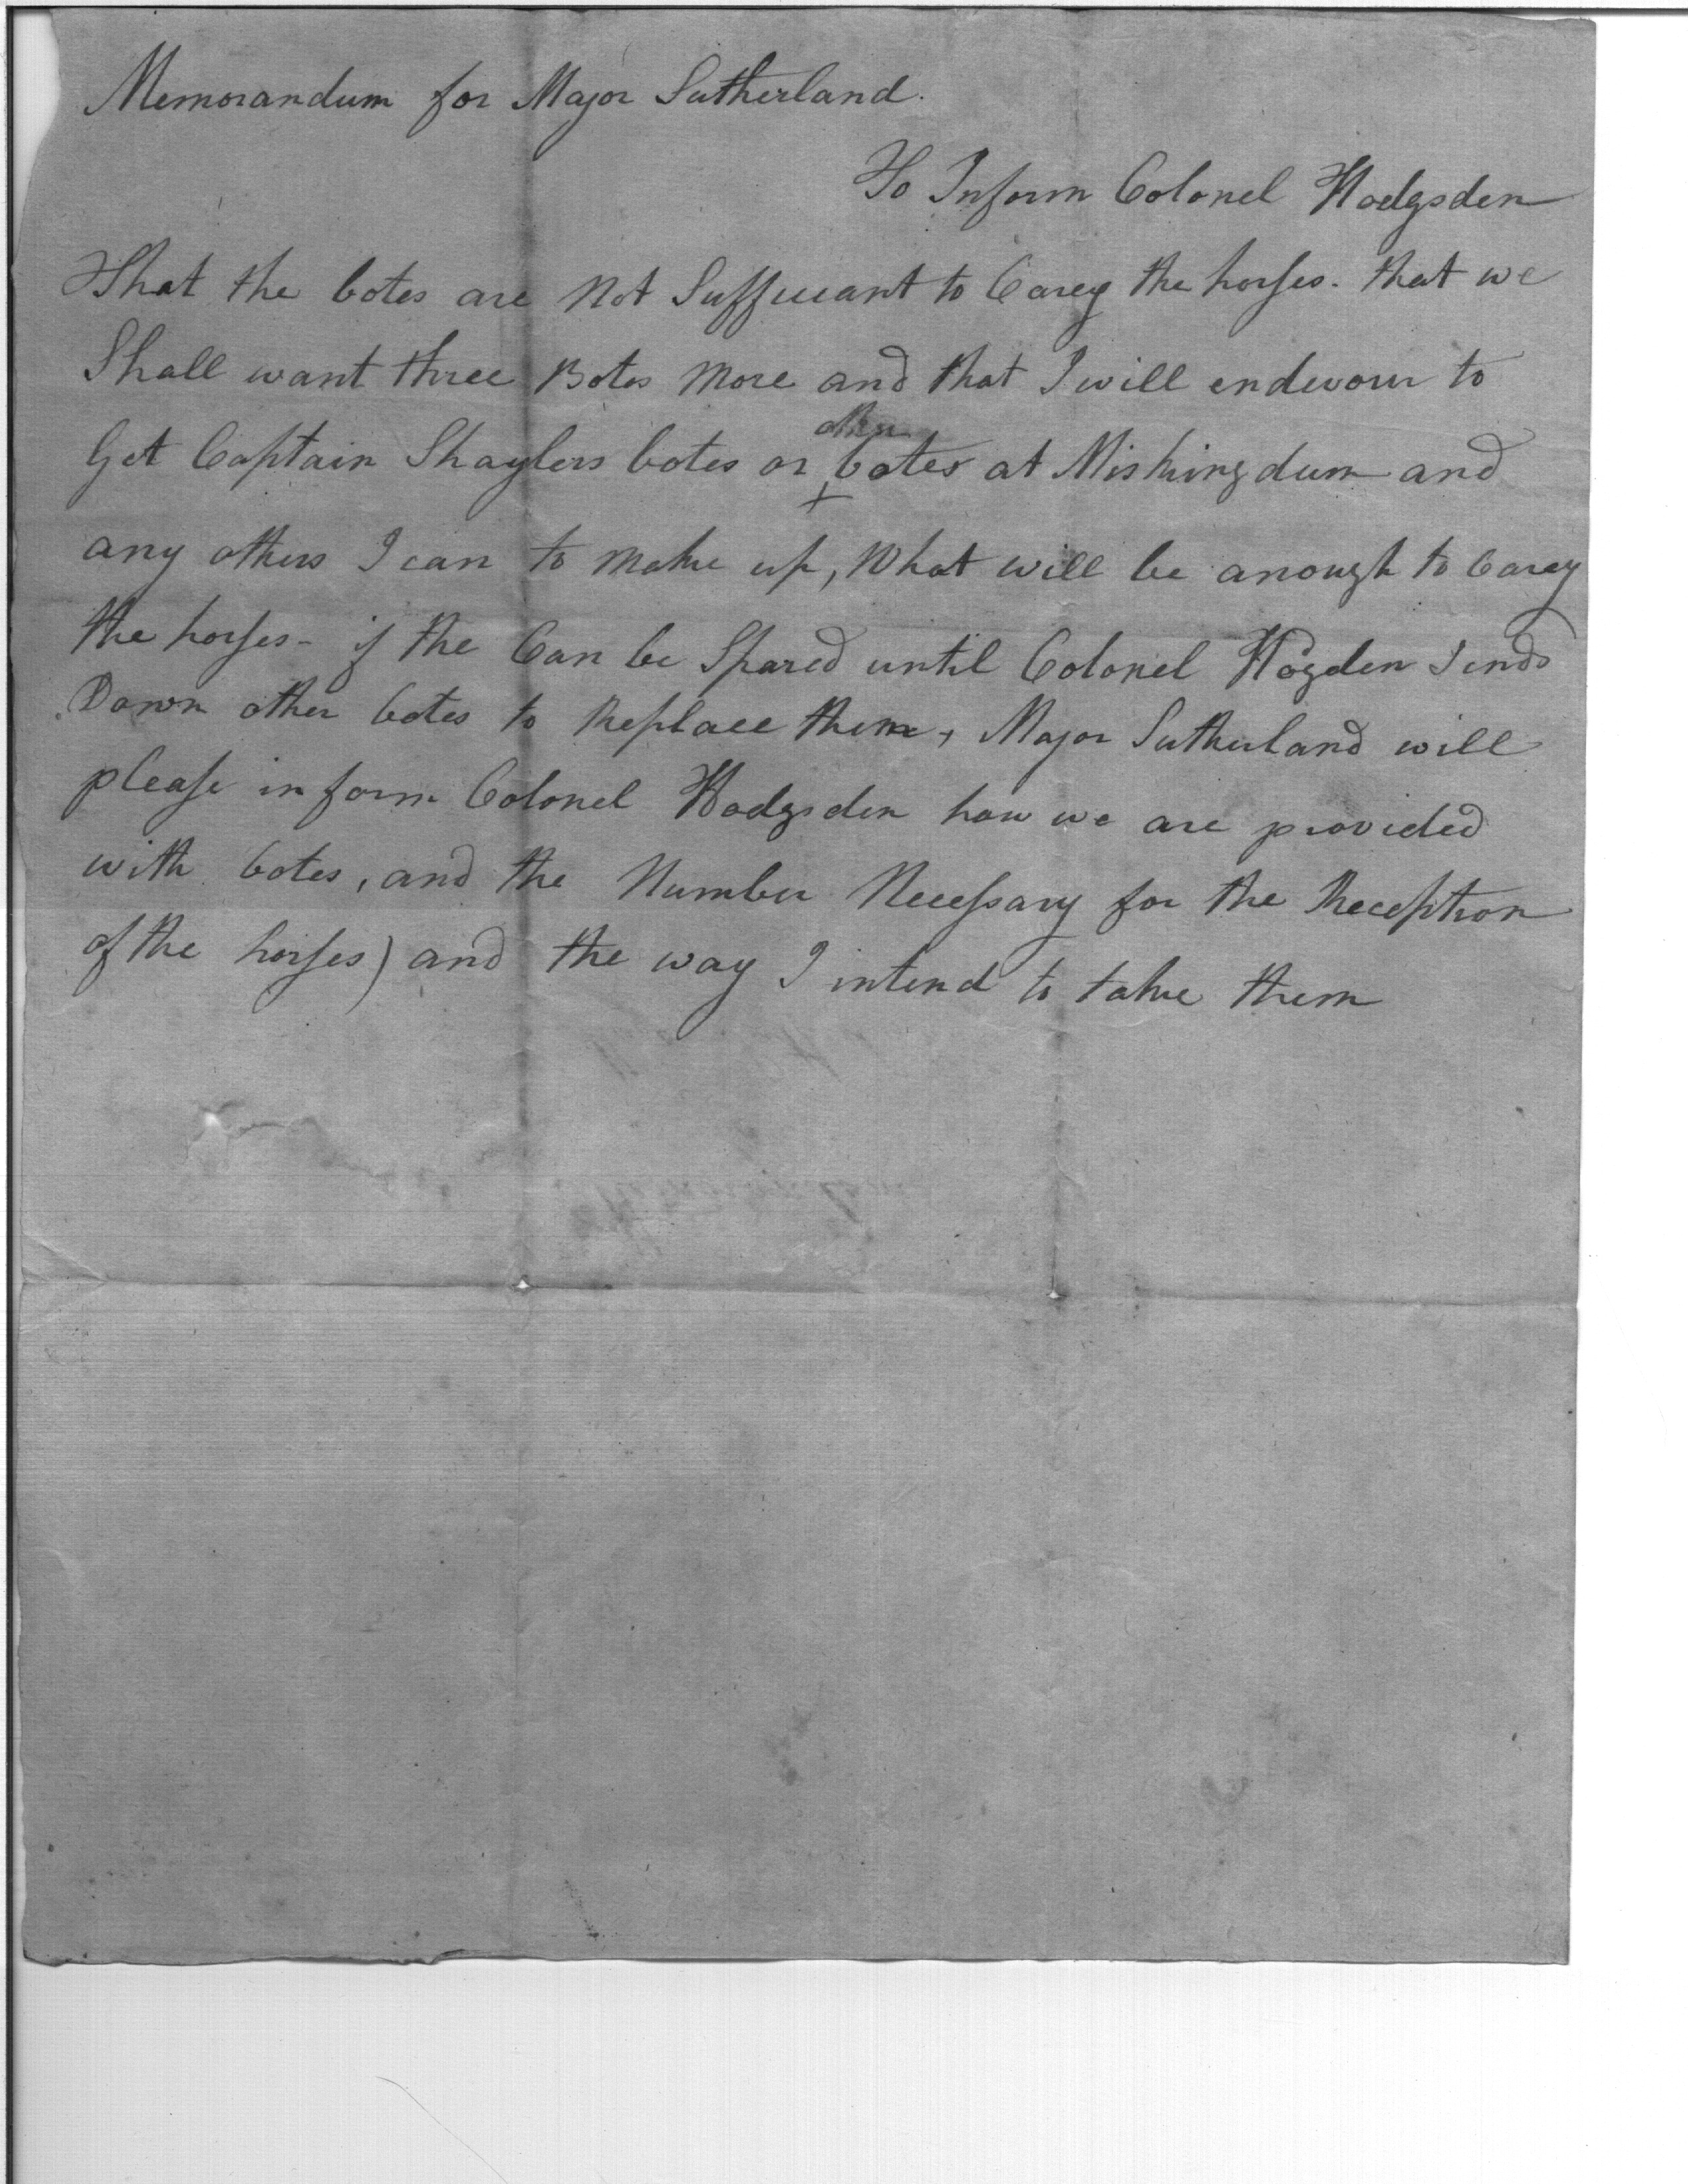 Memorandum for Major Sutherland.
To Inform Colonel Hodgsden
That the botes are Not Suffucant to Carey the horses. that we
Shall want three Botes More and that I will endevour to
other
Get Captain Shaylers botes or botes at Miskingdum and
any others I can to make up, What will be anough to Carey
the horses - if the Can be Spared until Colonel Hogden Sends
Down other botes to Replace them, Major Sutherland will
please inform Colonel Hodgsden how we are provided
with botes, and the Number Necessary for the Reception
of the horses) and the way I intend to take them